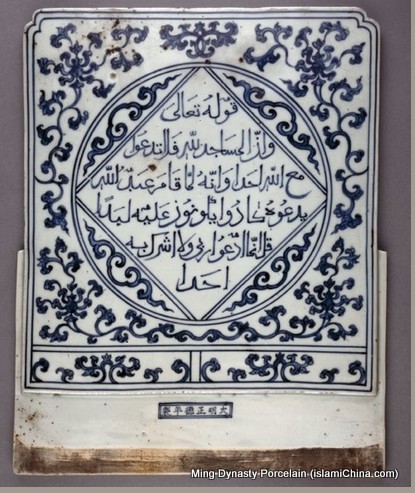 قوله تعالى
وان المساجد لله فلا تدعوا
مع الله احدا وانه لما قام عبد الله
يدعوه كادوا يكونون عليه لبدا
قل انما ادعوا ربي ولا اشرك به
احدا
大明正德年製
Ming-Dynasty-Porcelain (islamiChina.com)